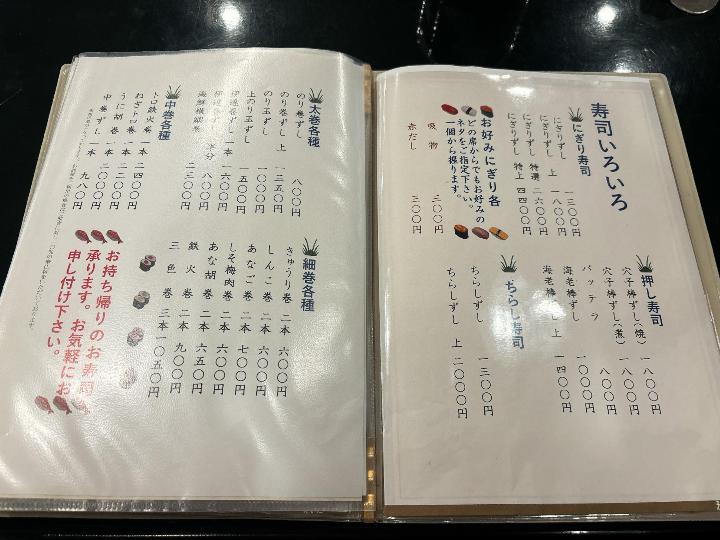 寿司いろいろ
にぎり寿司
にぎりずし 一三〇〇円
にぎりずし 上 一八〇〇円
にぎりずし 特選 二六〇〇円
にぎりずし 特上 四四〇〇円
お好みにぎり各
どの席からでもお好みの
ネタをご指定下さい。
一個から握ります。
吸物 三〇〇円
赤だし 三〇〇円
押し寿司
穴子棒ずし(焼) 一八〇〇円
穴子棒ずし(煮) 一八〇〇円
バッテラ 八〇〇円
海老棒ずし 一〇〇〇円
海老棒ずし 上 一四〇〇円
ちらし寿司
ちらしずし 一三〇〇円
ちらしずし 上 二〇〇〇円
太巻各種
のり巻ずし 八〇〇円
のり巻ずし 上 一三五〇円
のり玉ずし 一〇〇〇円
上のり玉ずし 一五〇〇円
伊達巻ずし 一本 一六〇〇円
伊達巻ずし 半分 八〇〇円
海鮮太巻 二三〇〇円
中巻各種
トロ鉄火巻 一本 二四〇〇円
ねぎトロ巻 一本 二〇〇〇円
うに胡巻 一本 二二〇〇円
中巻ずし 一本 九八〇円
細巻各種
きゅうり巻 二本 六〇〇円
しんこ巻 二本 六〇〇円
あなご巻 二本 七〇〇円
しそ梅肉巻 二本 六五〇円
あな胡巻 二本 六五〇円
鉄火巻 二本 九〇〇円
三色巻 三本 一〇五〇円
お持ち帰りのお寿司
承ります。お気軽にお
申し付け下さい。